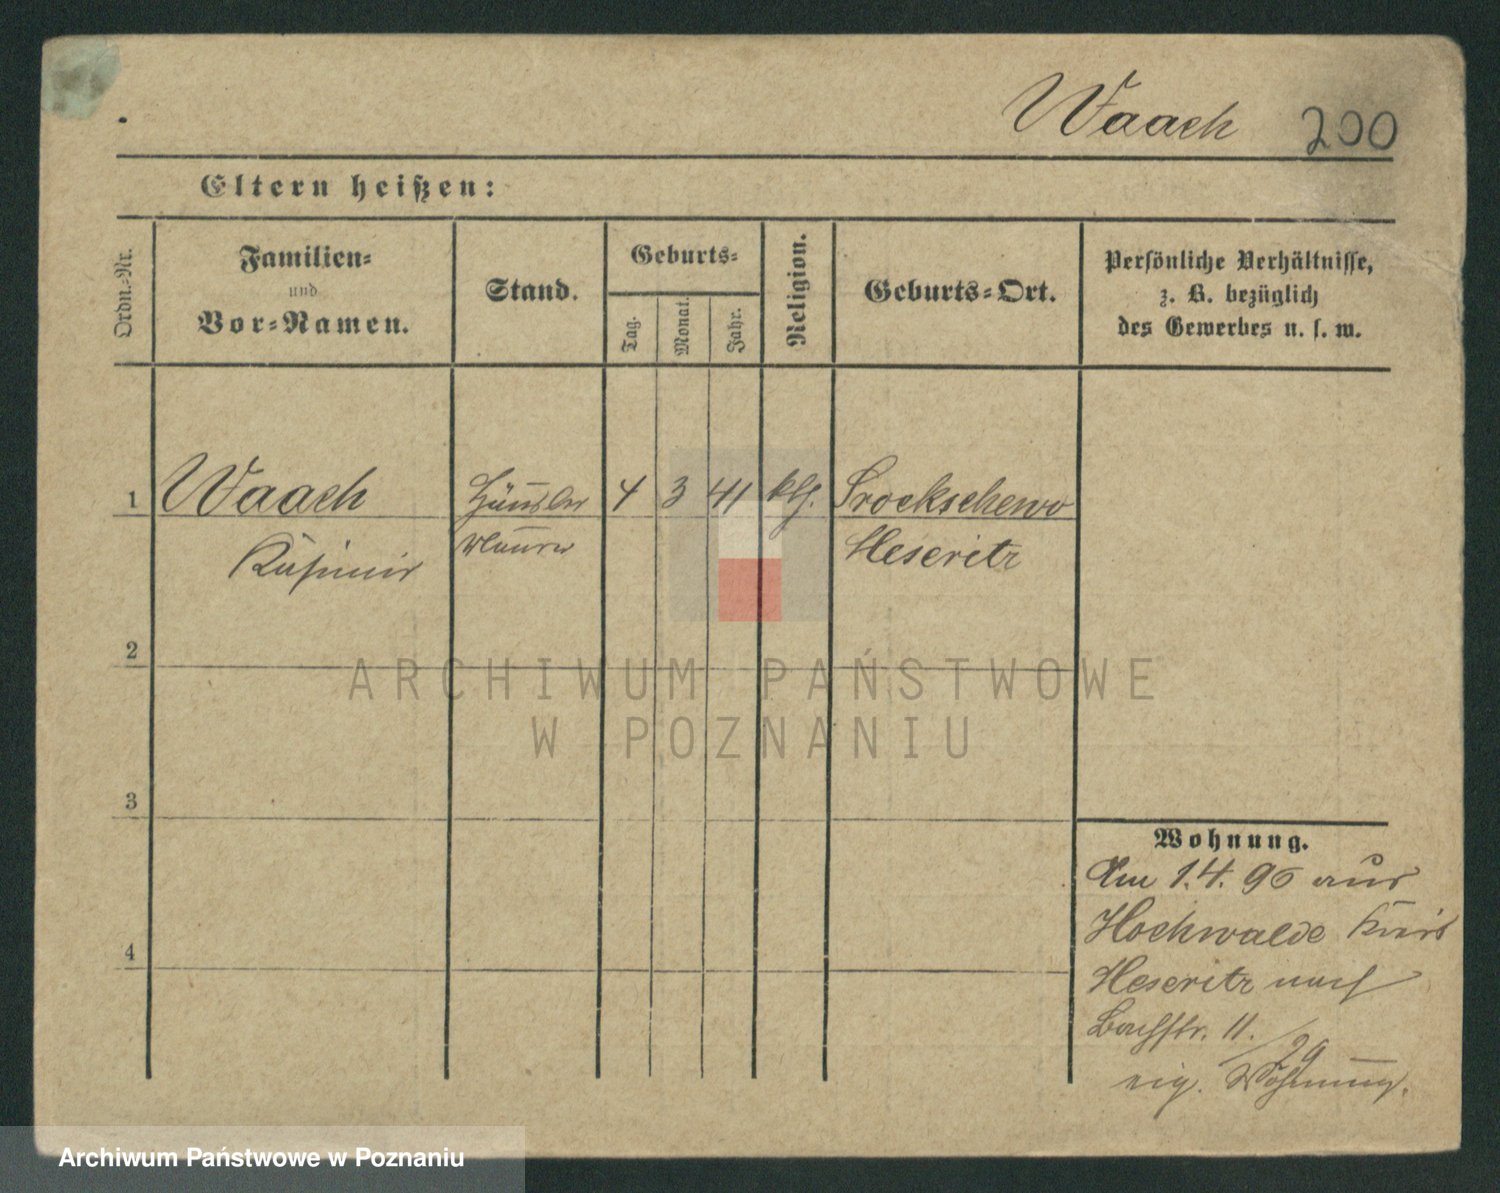 Waach 200
Eltern heißen:
Ordn.-Nr.
Familien-
und
Vor-Namen.
Stand.
Geburts-
Tag.
Monat.
Jahr.
Religion.
Geburts-Ort.
Persönliche Verhältnisse,
z. B. bezüglich
des Gewerbes u. s. w.
1 Waach Häusler 4 3 41 kth. Srockschewo
Kasimir Maurer Meseritz
2
ARCHIWUM PAŃSTWOWE
W POZNANIU
3
Wohnung.
Am 1.4.96 aus
Hochwalde Kreis
4
Meseritz nach
Bachstr. 11.
29
eig. Wohnung.
Archiwum Państwowe w Poznaniu